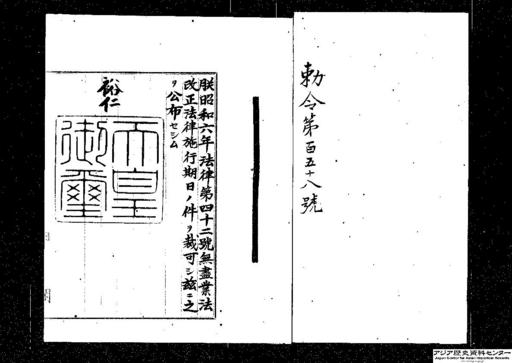 勅令第百五十八號
朕昭和六年法律第四十二號無盡業法
改正法律施行期日ノ件ヲ裁可シ茲ニ之
ヲ公布セシム
裕仁
天皇
御璽
アジア歴史資料センター
Japan Center for Asian Historical Records